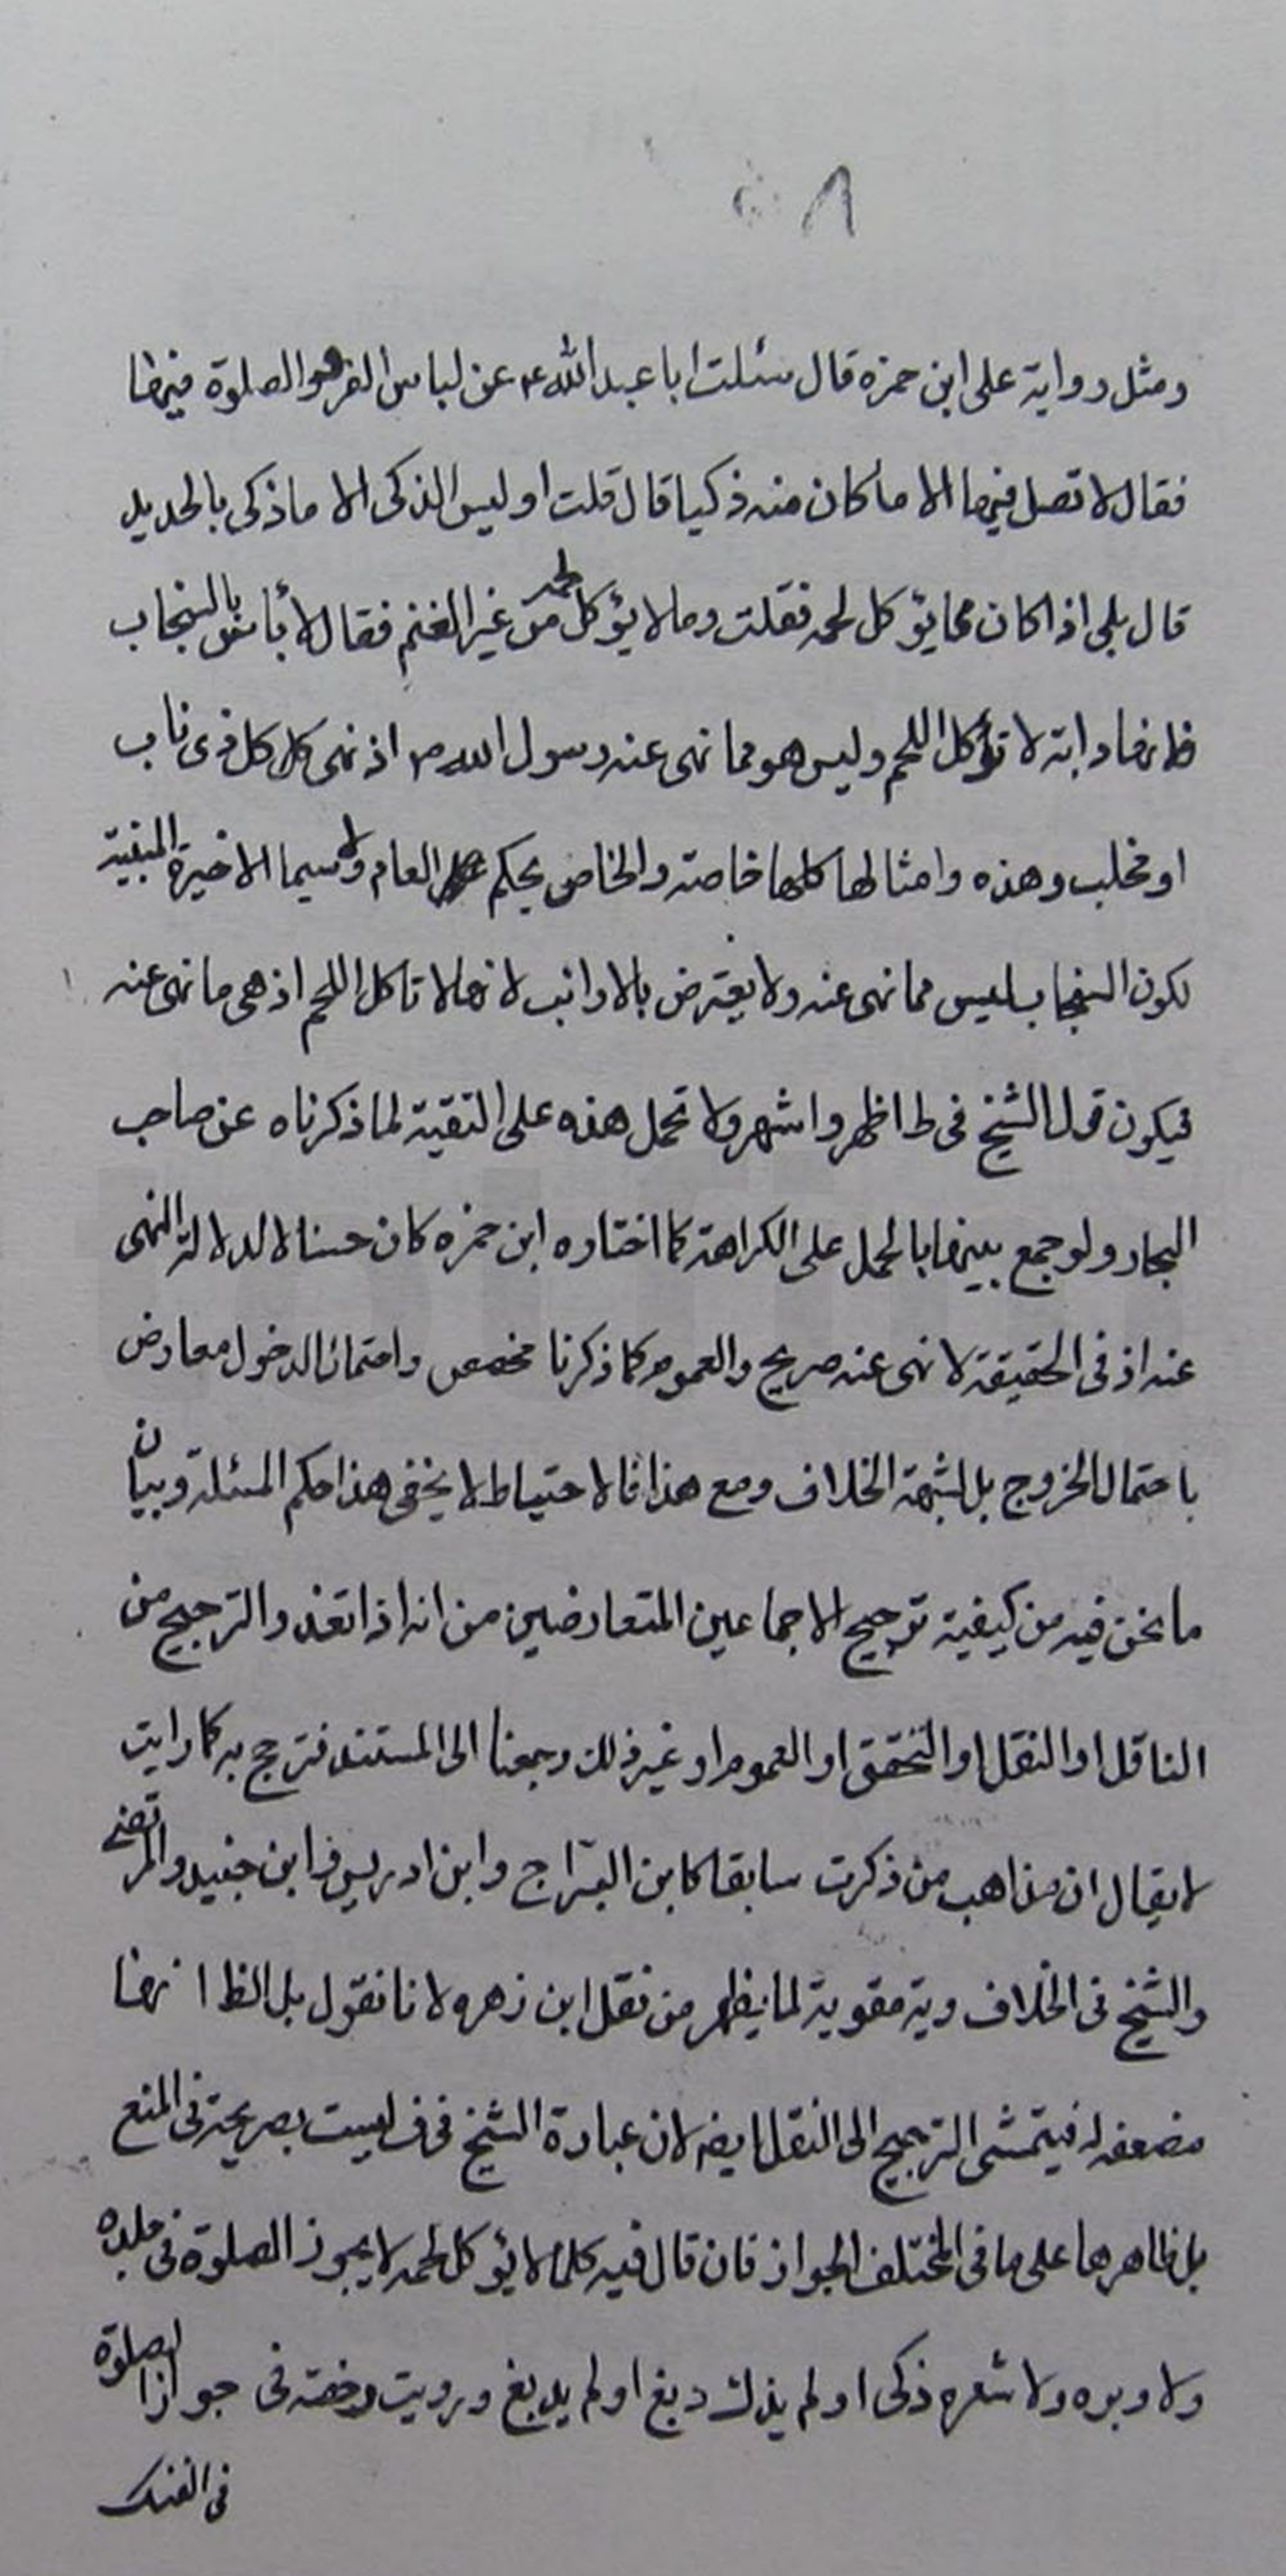 ٨
ومثل رواية على ابن حمزه قال سئلت ابا عبد الله ع عن لباس الفرو والصلوة فيها
فقال لا تصل فيها الا ما كان منه ذكيا قال قلت اوليس الذكى الا ما ذكى بالحديد
قال بلى اذا كان مما يؤكل لحمه فقلت وما لا يؤكل لحمه من غير الغنم فقال لا بأس بالسنجاب
فانها دابة لا تأكل اللحم وليس هو مما نهى عنه رسول الله ص اذ نهى كل ذى ناب
او مخلب وهذه وامثالها كلها خاصة والخاص يحكم العام ولا سيما الاخيرة المبنية
لكون السنجاب ليس مما نهى عنه ولا يعترض بالارانب لانها لا تاكل اللحم اذ هى ما نهى عنه
فيكون قول الشيخ فى ط اظهر واشهر ولا تحمل هذه على التقية لما ذكرناه عن صاحب
البحار ولو جمع بينها بالحمل على الكراهة كما اختاره ابن حمزه كان حسنا لا لدلالة النهى
عنه اذ فى الحقيقة لا نهى عنه صريح والعموم كما ذكرنا مخصص واحتمال الدخول معارض
باحتمال الخروج بل لشبهة الخلاف ومع هذا فالاحتياط لا يخفى هذا حكم المسئلة وبيان
ما نحن فيه من كيفية ترجيح الاجماعين المتعارضين من انه اذا تعذر الترجيح من
الناقل او النقل او التحقق او العموم او غير ذلك رجعنا الى المستند فترجح به كما رايت
لا يقال ان مذاهب من ذكرت سابقا كابن البراج وابن ادريس وابن جنيد والمرتضى
والشيخ فى الخلاف ويه مقوية لما يظهر من نقل ابن زهره لانا نقول بل الظ انها
مضعفه له فيتمشى الترجيح الى النقل ايضا لان عبارة الشيخ فى ف ليست بصريحة فى المنع
بل ظاهرها على ما فى المختلف الجواز فان قال فيه كلما لا يؤكل لحمه لا يجوز الصلوة فى جلده
ولا وبره ولا شعره ذكى او لم يذك دبغ او لم يدبغ ورويت رخصة فى جواز الصلوة
فى الفنك